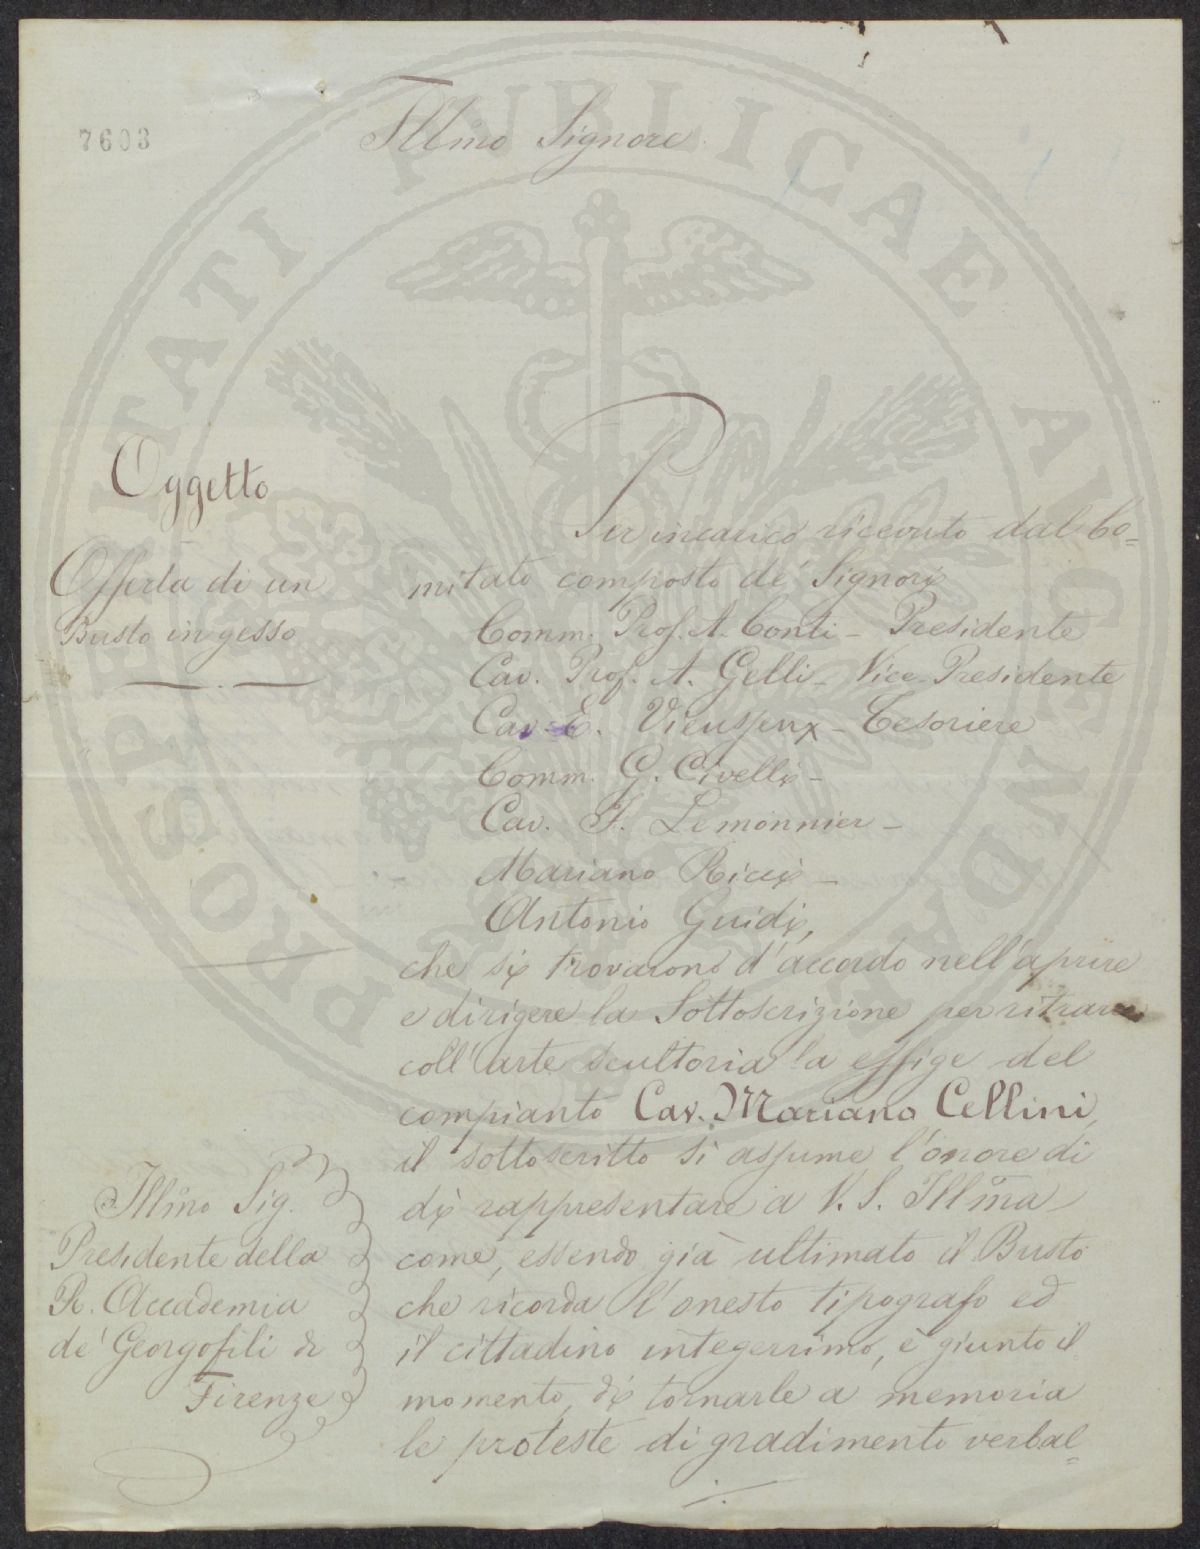 7603
Illmo Signore
Oggetto
Offerta di un
Busto in gesso
Per incarico ricevuto dal Co=
mitato composto de' Signori
Comm. Prof. A. Conti - Presidente
Cav. Prof. A. Gelli - Vice-Presidente
Cav. E. Vieusseux - Tesoriere
Comm. G. Civelli -
Cav. F. Lemonnier -
Mariano Ricci -
Antonio Guidi,
che si trovarono d'accordo nell'aprire
e dirigere la Sottoscrizione per ritrarre
coll'arte scultoria la effige del
compianto Cav. Mariano Cellini,
il sottoscritto si assume l'onore di
di rappresentare a V. S. Illma
come, essendo già ultimato il Busto
che ricorda l'onesto tipografo ed
il cittadino integerrimo, è giunto il
momento di tornarle a memoria
le proteste di gradimento verbal=
Illmo Sig.
Presidente della
R. Accademia
de' Georgofili di
Firenze
PROSPERITATI PUBLICAE AUGENDAE